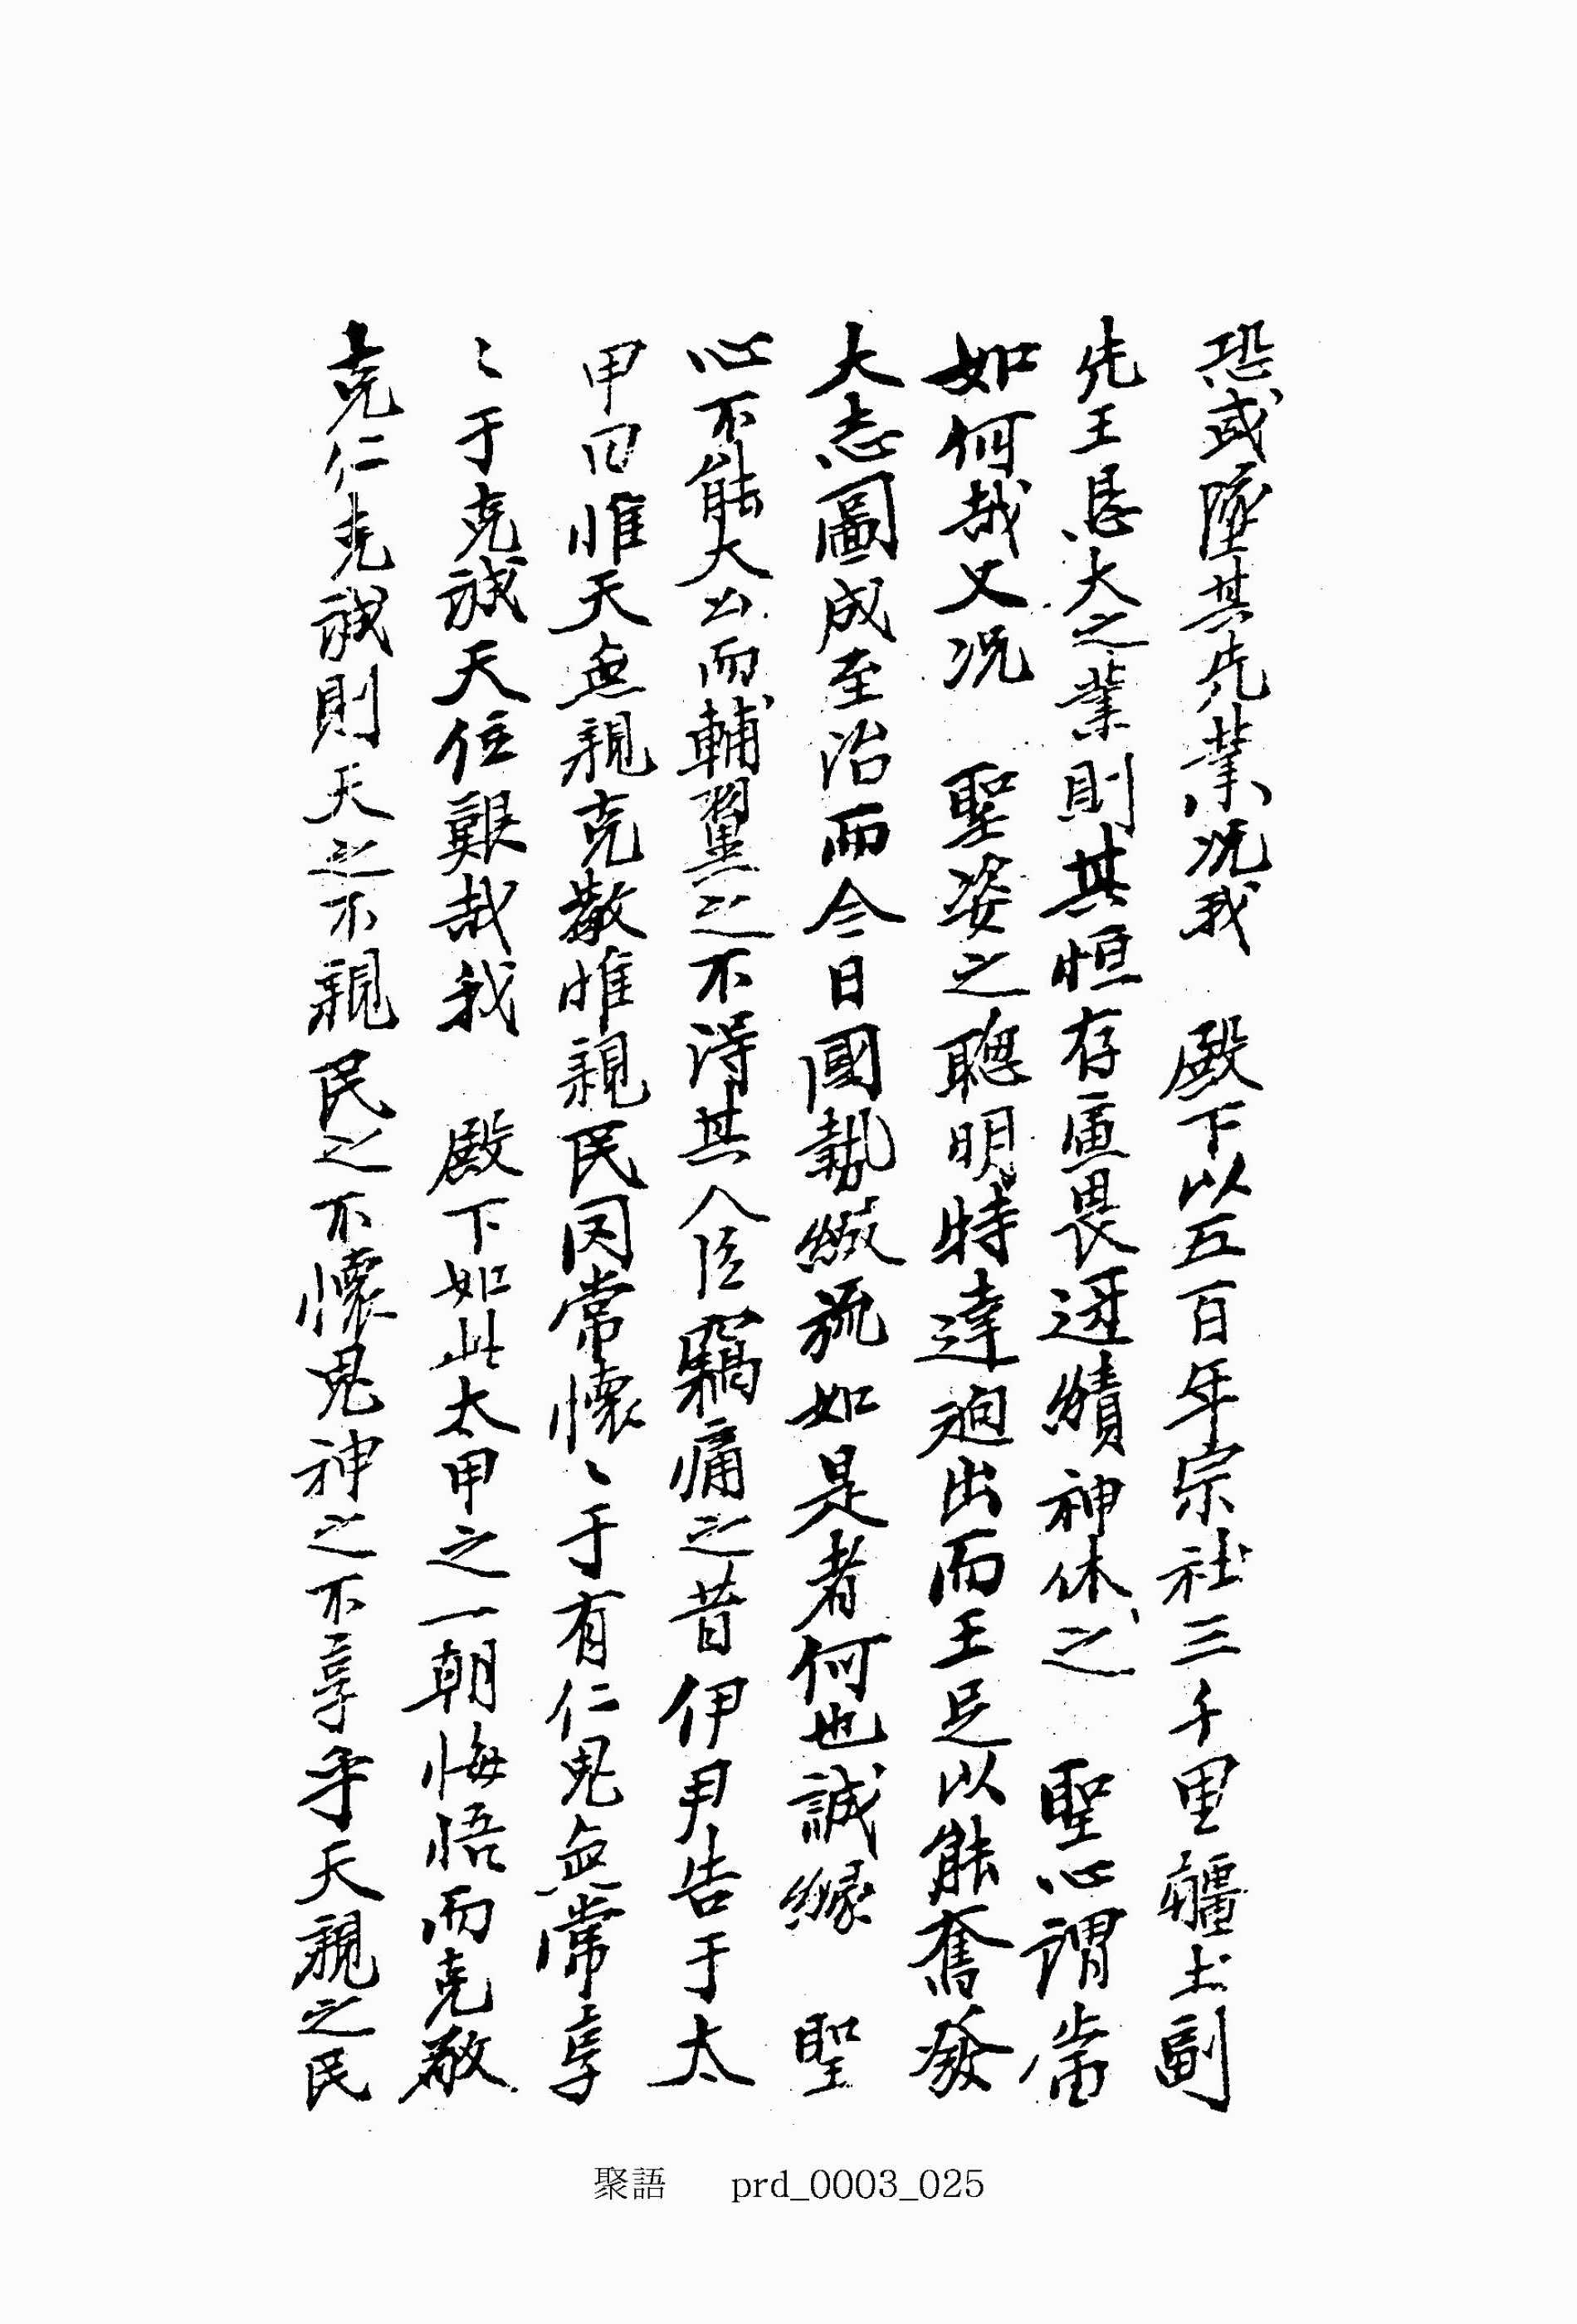 恐或墜其先業況我　殿下以五百年宗社三千里疆土副
先王艱大之業則其恒存寅畏迓續神休之　聖心謂當
如何哉又況　聖姿之聰明特達逈出而王足以能奮發
大志圖成至治而今日國勢綴旒如是者何也誠緣　聖
心不能大公而輔翼之不得其人臣竊痛之昔伊尹告于太
甲曰惟天無親克敬惟親民罔常懷〻于有仁鬼無常享
〻于克誠天位艱哉我　殿下如此太甲之一朝悔悟而克敬
克仁克誠則天之不親民之不懷鬼神之不享乎天親之民
聚語　prd_0003_025